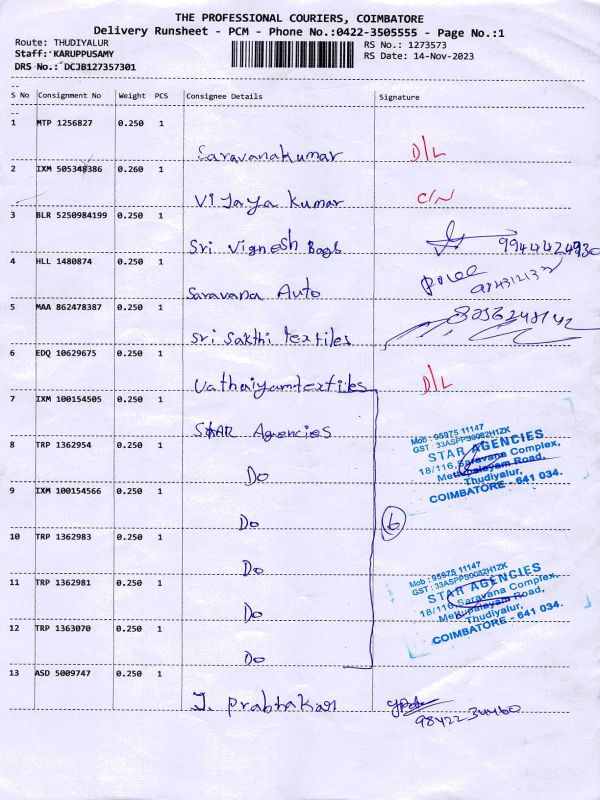 THE PROFESSIONAL COURIERS, COIMBATORE
Delivery Runsheet - PCM - Phone No.:0422-3505555 - Page No.:1
Route: THUDIYALUR
RS No.: 1273573
Staff: KARUPPUSAMY
RS Date: 14-Nov-2023
DRS No.: DCJB127357301
S No Consignment No Weight PCS Consignee Details Signature
1 MTP 1256827 0.250 1
Saravanakumar D/L
2 IXM 505348386 0.260 1
Vijaya Kumar C/N
3 BLR 5250984199 0.250 1
Sri Vignesh Bags 9944424930
4 HLL 1480874 0.250 1
Saravana Auto
5 MAA 862478387 0.250 1
Sri Sakthi textiles 8056248142
6 EDQ 10629675 0.250 1
Vathaiyamtextiles D/L
7 IXM 100154505 0.250 1
STAR Agencies
8 TRP 1362954 0.250 1
Do
9 IXM 100154566 0.250 1
Do
10 TRP 1362983 0.250 1
Do
11 TRP 1362981 0.250 1
Do
12 TRP 1363070 0.250 1
Do
6
Mob : 95975 11147
GST : 33ASPPS9082H1ZK
STAR AGENCIES
18/116, Saravana Complex,
Mettupalayam Road,
Thudiyalur,
COIMBATORE - 641 034.
Mob : 95975 11147
GST : 33ASPPS9082H1ZK
STAR AGENCIES
18/116, Saravana Complex,
Mettupalayam Road,
Thudiyalur,
COIMBATORE - 641 034.
13 ASD 5009747 0.250 1
J. Prabhakar
9842234460